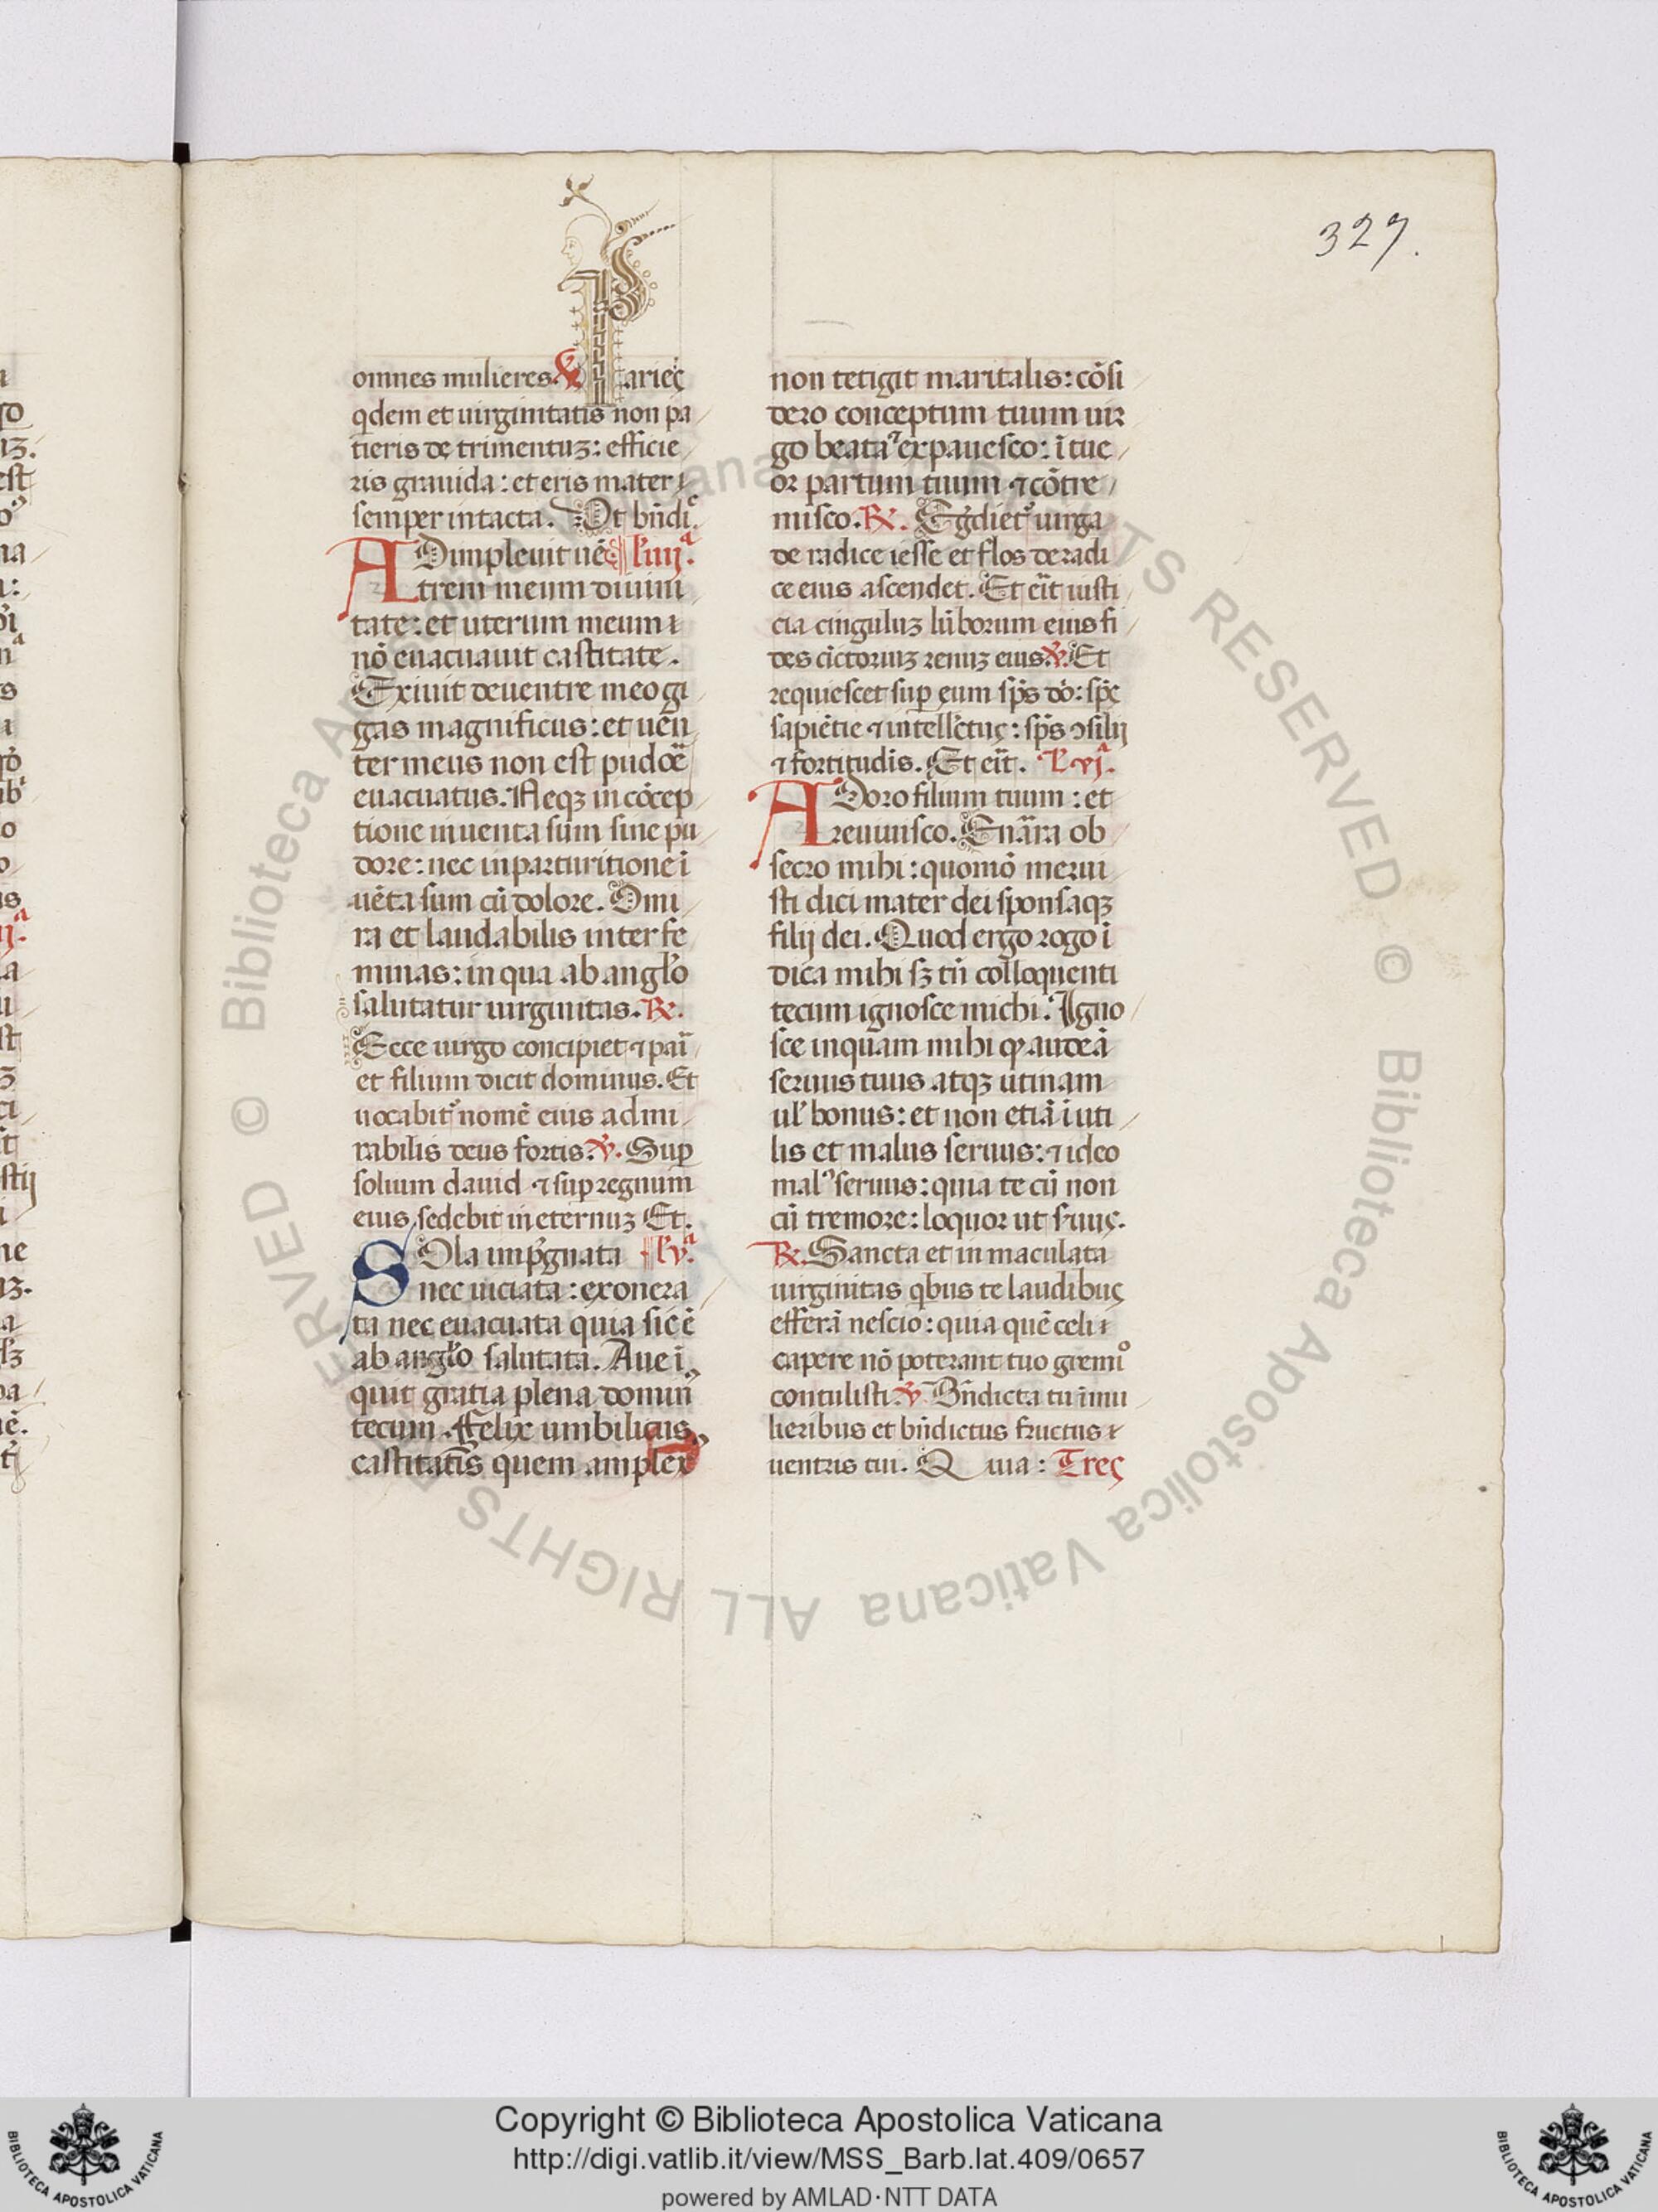 327.
omnes mulieres. ℣. Parieς
qdem et uirginitatis non pa
tieris de trimentuꝫ: efficie
ris grauida: et eris mater
semper intacta. Ut bñdi͛
ADimpleuit uē l' iiijª.
trem meum diuini
tate: et uterum meum
nō euacuauit castitate.
Exiuit de uentre meo gi
gas magnificus: et uēn
ter meus non est pudoē
euacuatus. Neqꝫ in cōcep
tione inuenta sum sine pu
dore: nec in parturitione ī
uēta sum cū dolore. O mi
ra et laudabilis inter fe
minas: in qua ab angło
salutatur uirginitas. ℟.
Ecce uirgo concipiet ⁊ pari̅
et filium dicit dominus. Et
uocabit᷑ nomē eius admi
rabilis deus fortis. ℣. Suꝑ
solium dauid ⁊ suꝑ regnum
eius sedebit in eternuꝫ Et.
SOla imp̄gnata l' vª.
nec uiciata: exonera
ta nec euacuata quia sic ē
ab angło salutata. Aue ī
quit gratia plena domin̄
tecum. Felix umbilicus
castitatīs quem amplex
non tetigit maritalis: cōsi
dero conceptum tuum uir
go beata ⁊ expauesco: ītue
or partum tuum ⁊ cōtre
misco. ℟. Egdiet᷑ uirga
de radice iesse et flos de radi
ce eius ascendet. Et erit̄ iusti
cia cinguluꝫ lūborum eius fi
des cīctoriuꝫ renuꝫ eius ℣. Et
requiescet suꝑ eum sp̄s dō: sp̄ς
sapiētie ⁊ intell'ctuς: sp̄s ↄsilij
⁊ fortitudis. Et erit̄. L' vjª.
ADoro filium tuum: et
reuiuisco. Enar̄a ob
secro mihi: quomō merui
sti dici mater dei sponsaqꝫ
filij dei. Quod ergo rogo ī
dica mihi sꝫ tn̄ colloquenti
tecum ignosce michi. Igno
sce inquam mihi ꝙ audeā
seruus tuus atqꝫ utinam
ul' bonus: et non etiā ī uti
lis et malus seruus: ⁊ ideo
malꝰ seruus: quia te cū non
cū tremore: loquor ut suuς.
℟. Sancta et in maculata
uirginitas qbus te laudibuς
efferā nescio: quia quē celi
capere nō poterant tuo gremiº
contulisti. ℣. Bn̄dicta tu ī mu
lieribus et bn̄dictus fructus
uentris tui. Quia: Treς
Copyright © Biblioteca Apostolica Vaticana
http://digi.vatlib.it/view/MSS_Barb.lat.409/0657
powered by AMLAD·NTT DATA